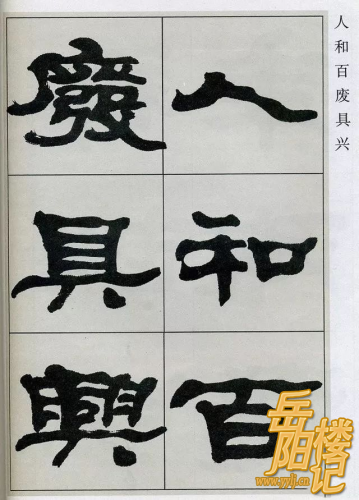 人和百废具兴
人和百
廢具興
岳阳楼记
www.yylj.cn